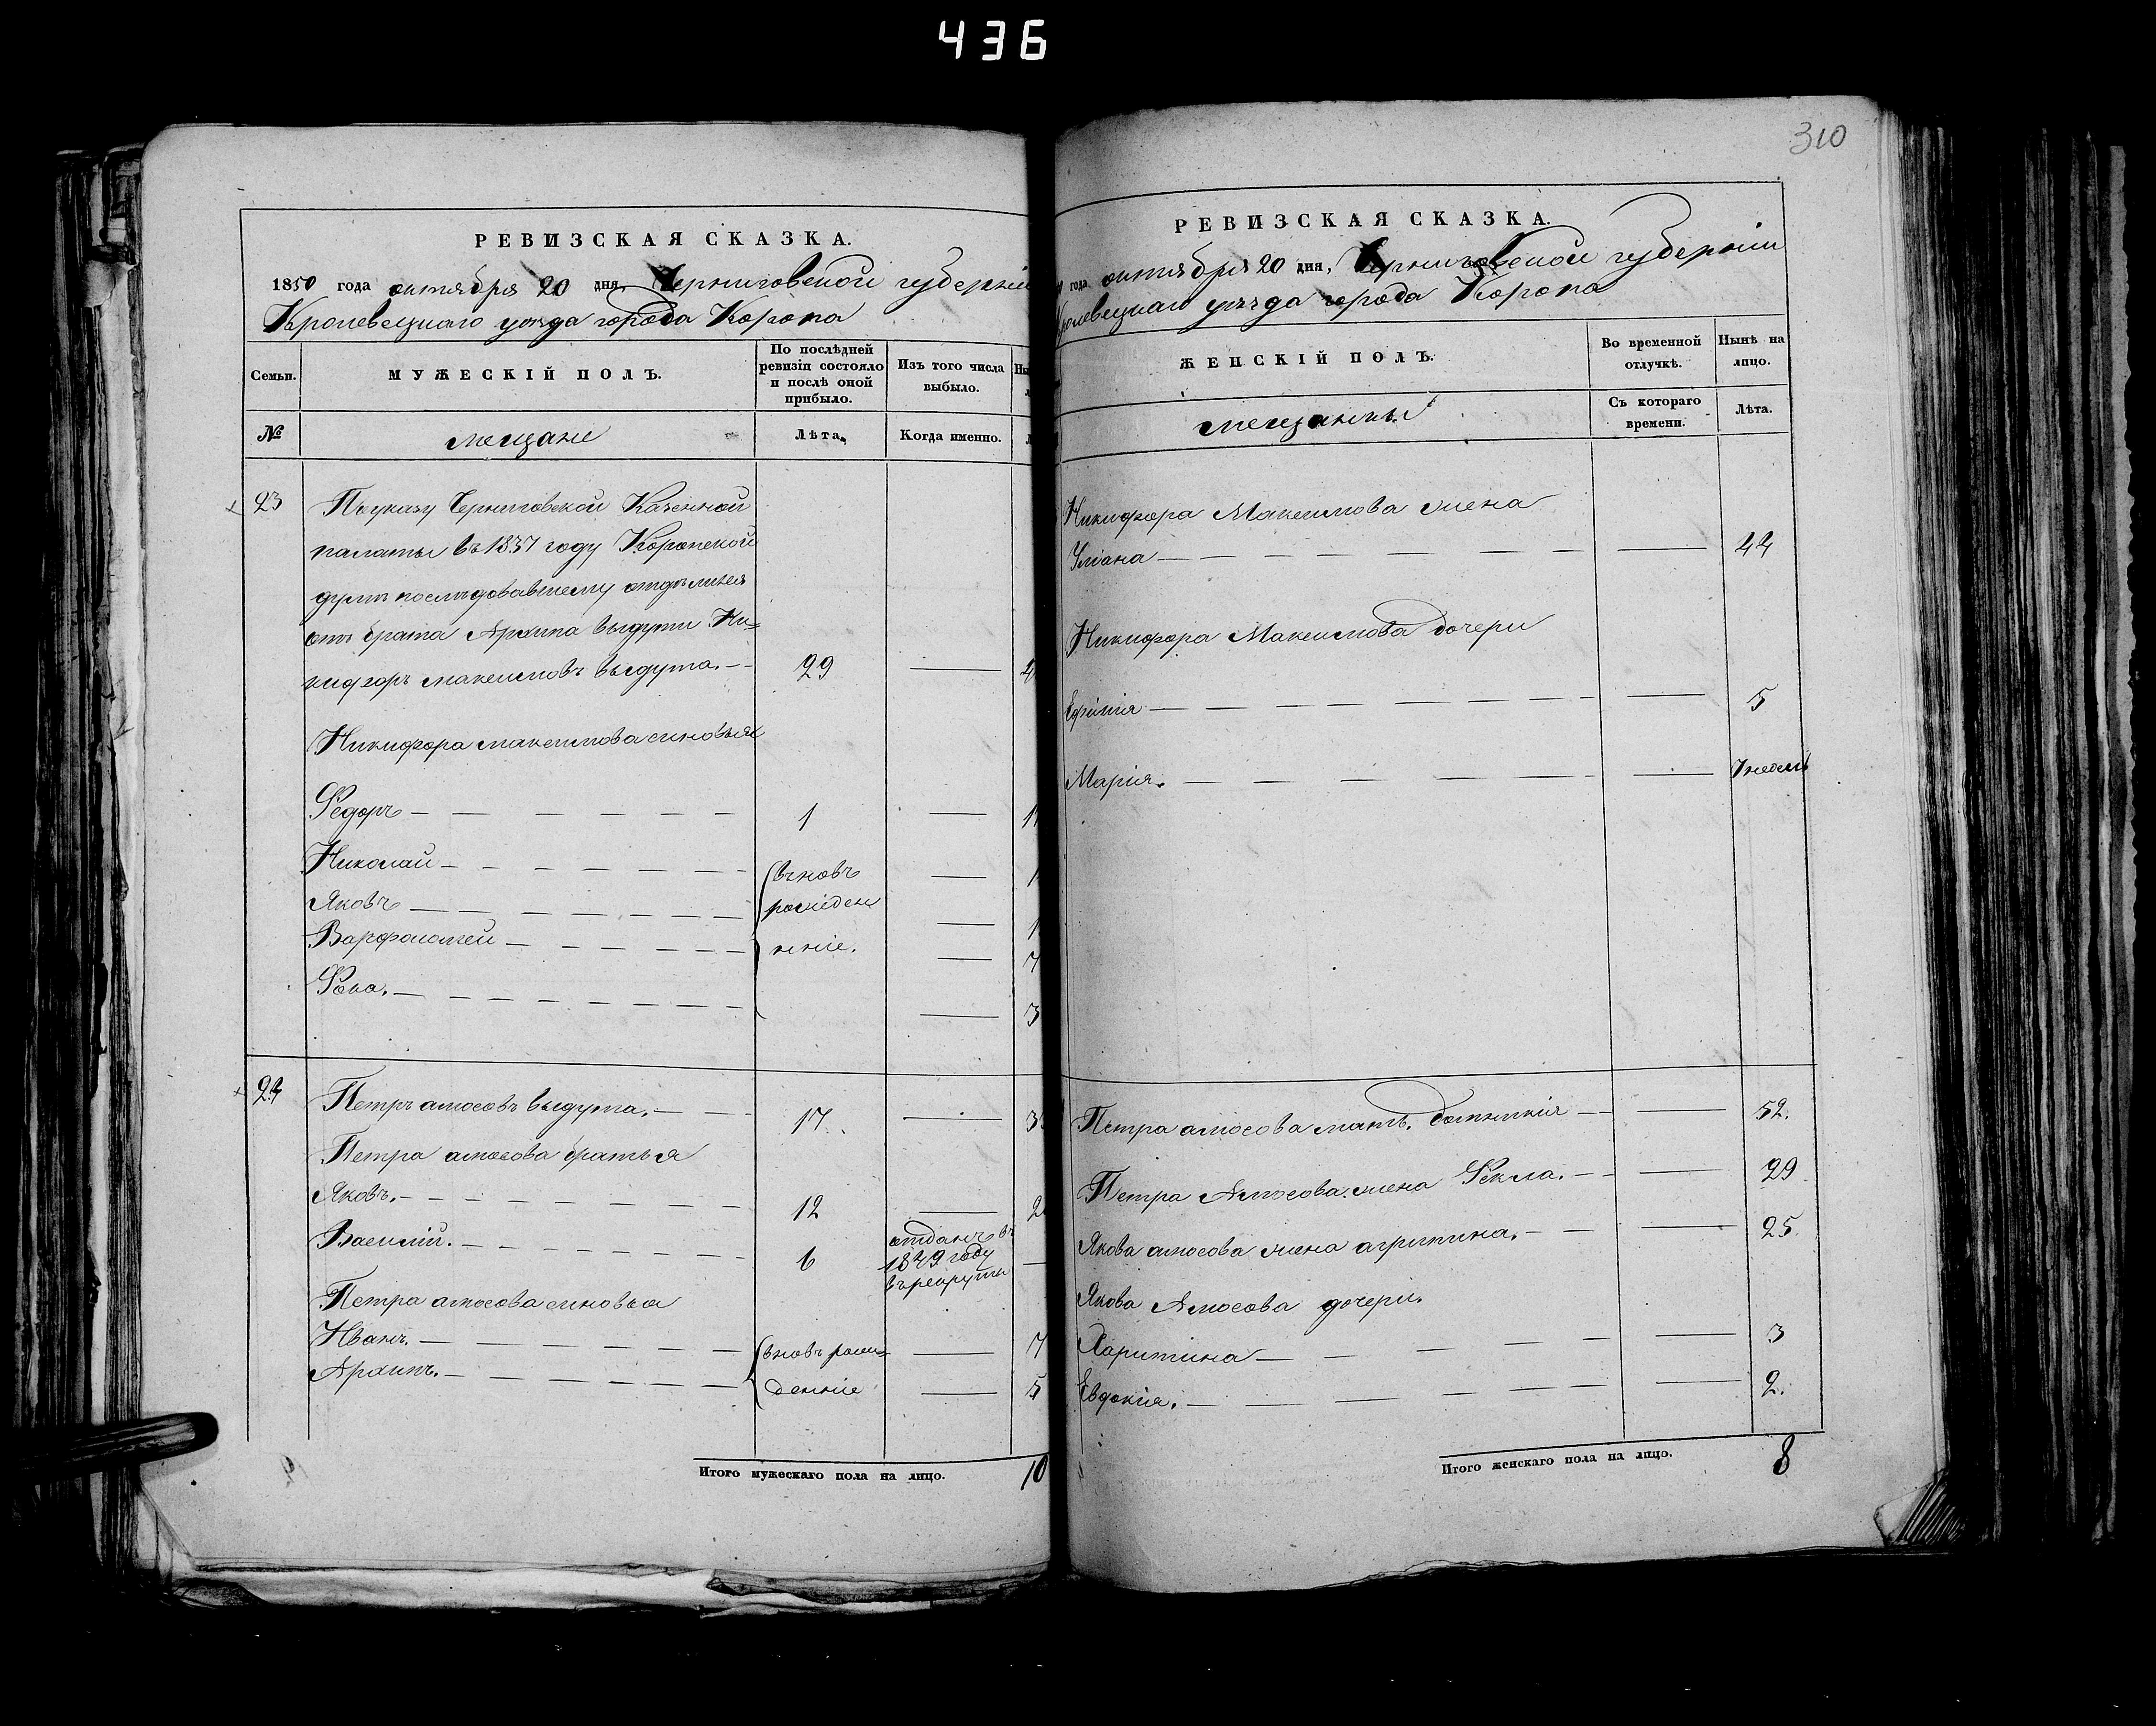 436
310
РЕВИЗСКАЯ СКАЗКА.
1850 года октября 20 дня, Черниговской губерніи
Кролевецкаго уѣзда города Коропа
Семьи.
МУЖЕСКІЙ ПОЛЪ.
По послѣдней
ревизіи состояло
и послѣ оной
прибыло.
Изъ того числа
выбыло.
№
мещане
Лѣта.
Когда именно.
23 По указу Черниговской Казенной
палаты въ 1837 году Коропской
думѣ последовавшему отдѣлился
отъ брата Архипа Выдути Ни=
кифоръ максимовъ выдута. 29
Никифора максимова сыновья
Федоръ 1
Николай
Яковъ
Варфоломей
Фока. 3
вновъ
рожіден
нніе.
24 Петръ амосовъ выдута. 17
Петра амосова братья
Яковъ. 12
Василій. 6 отданъ въ
1849 году
въ рекруты
Петра амосова сыновья
Иванъ. 7
Архипъ. 5
вновъ рож=
денніе
Итого мужескаго пола на лицо. 10
РЕВИЗСКАЯ СКАЗКА.
года октября 20 дня, Черниговской губерніи
Кролевецкаго уѣзда города Коропа
ЖЕНСКІЙ ПОЛЪ.
Во временной
отлучкѣ.
Нынѣ на
лицо.
мещанки
Съ котораго
времени.
Лѣта.
Никифора Максимова жена
Уліана 44
Никифора Максимова дочери
Ефимія 5
Марія. 7 недель
Петра амосова мать. Домникія 52.
Петра Амосова жена Фекла. 29
Якова амосова жена агрипина. 25.
Якова Амосова дочери.
Харитина 3
Евдокія. 2.
Итого женскаго пола на лицо. 8